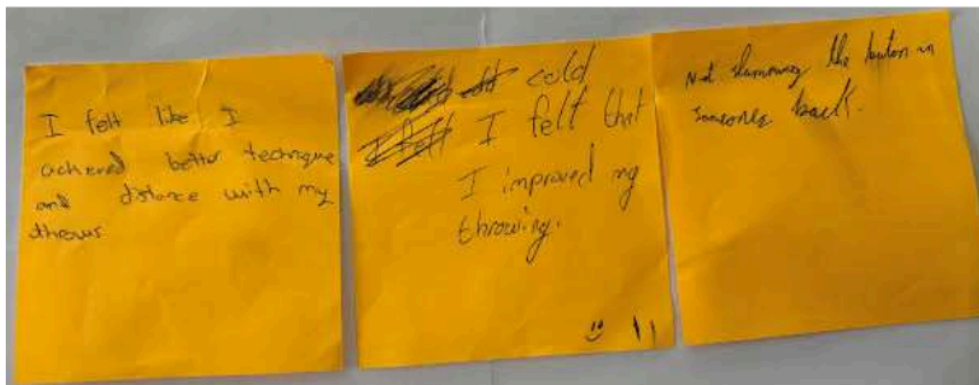 I felt like I
acheved better technique
and distance with my
throws
cold
I felt that
I improved my
throwing.
Not the baton in
someones back.